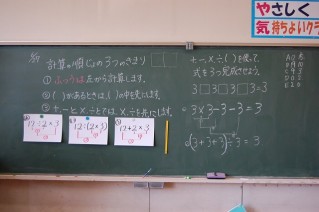 やさしく
気持ちよいクラ
計算の順じょの3つのきまり
① ふつうは左から計算します。
②( )があるときは、( )の中を先にします。
③ +、-と×、÷とでは、×、÷を先にします。
12÷2×3
12÷(2×3)
12+2×3
+、-、×、÷、( )を使って、
式を3つ完成させよう。
3□3□3□3=3
3×3-3-3=3
(3+3+3)÷3=3